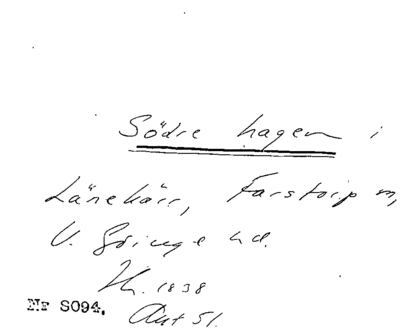 Södre hagen i
Länekärr, Farstorp sn,
V. Göinge hd.
1838
Nr S094.